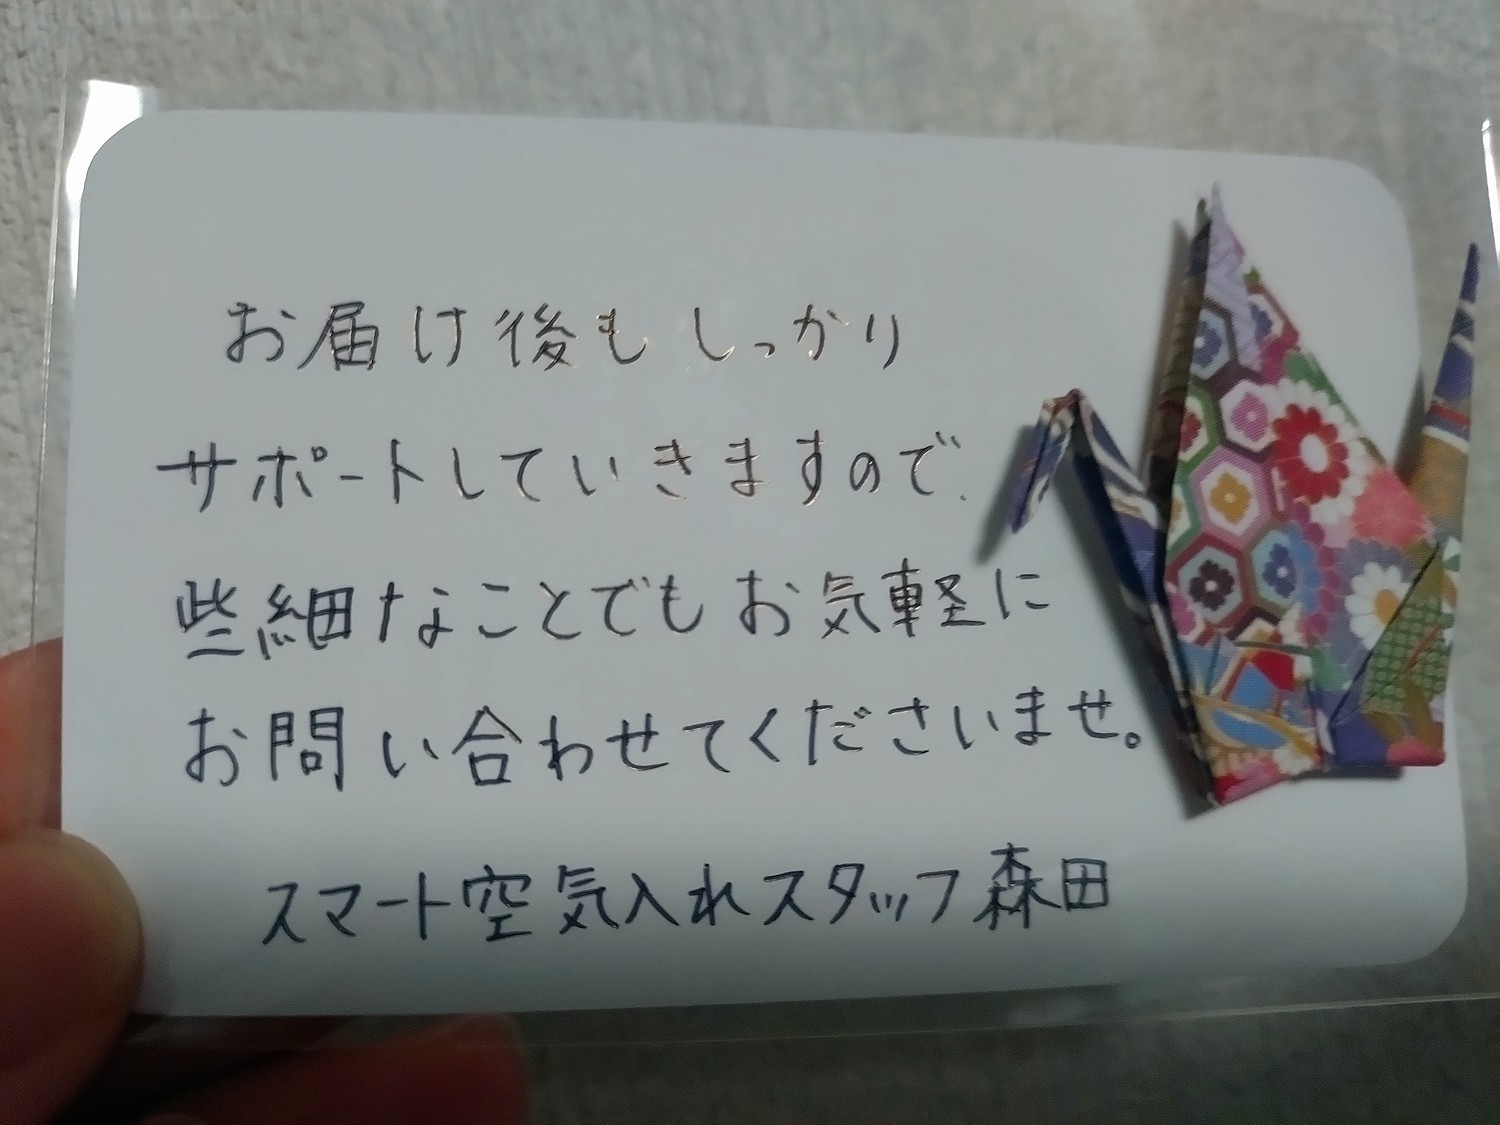 お届け後もしっかり
サポートしていきますので、
些細なことでもお気軽に
お問い合わせてくださいませ。
スマート空気入れスタッフ森田